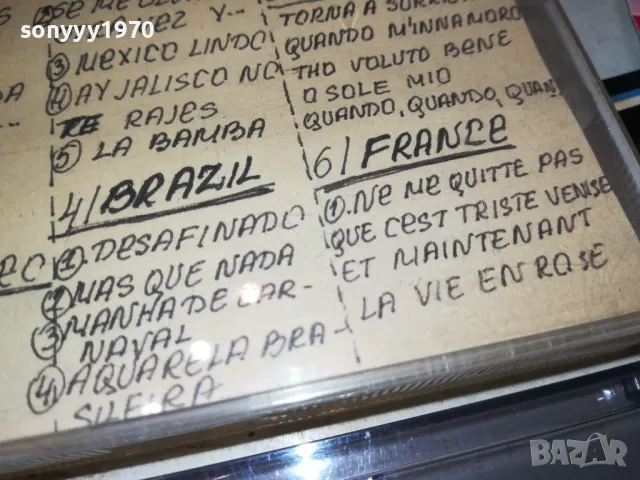 sonyyy1970
③ MEXICO LINDO
④ AY JALISCO NO
TE RAJES
⑤ LA BAMBA
4/ BRAZIL
① DESAFINADO
② MAS QUE NADA
③ MANHA DE CAR-
NAVAL
④ AQUARELA BRA-
SILEIRA
TORNA A
QUANDO M'INNAMORO
THO VOLUTO BENE
O SOLE MIO
QUANDO, QUANDO, QUAN
6/ FRANCE
①. NE ME QUITTE PAS
QUE C'EST TRISTE VENISE
ET MAINTENANT
LA VIE EN ROSE
BAZAR